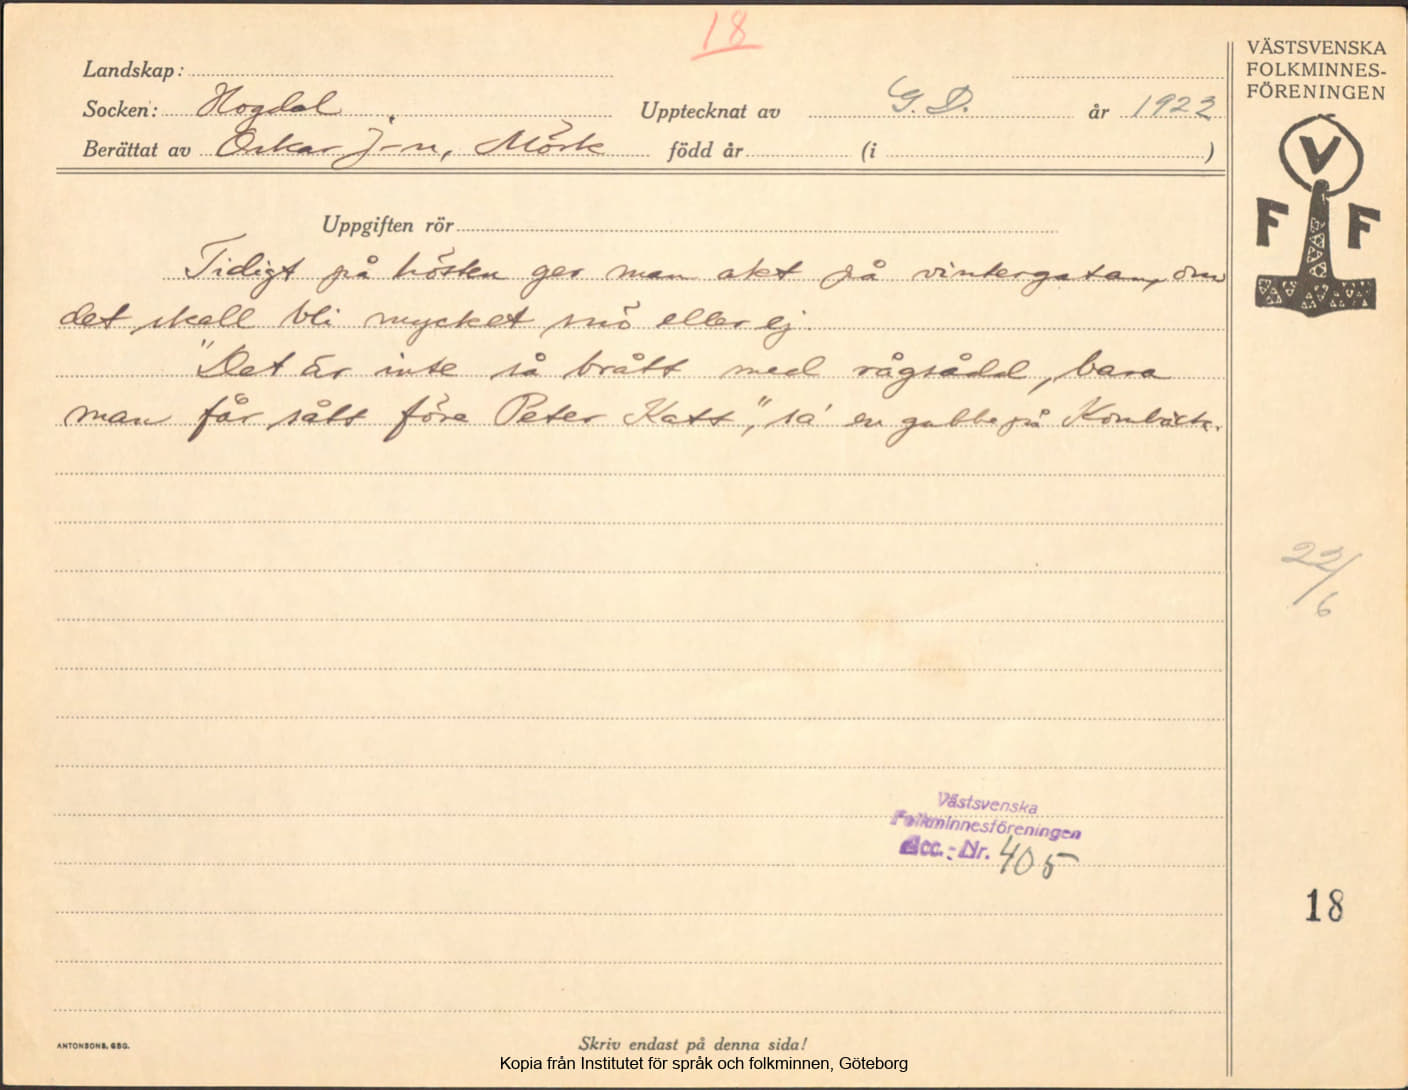 18
Landskap:
Socken: Hogdal Upptecknat av G. D. år 1922
Berättat av Oskar J-n, Mörk född år (i )
VÄSTSVENSKA
FOLKMINNES-
FÖRENINGEN
V
F F
Uppgiften rör
Tidigt på hösten ger man akt på vintergatan, om
det skall bli mycket snö eller ej.
"Det är inte så brått med rågsådd, bara
man får sått före Peter Katt", sa' en gubbe på
22/6
Västsvenska
Folkminnesföreningen
Acc.-Nr. 405
18
ANTONSONS, GBG.
Skriv endast på denna sida!
Kopia från Institutet för språk och folkminnen, Göteborg